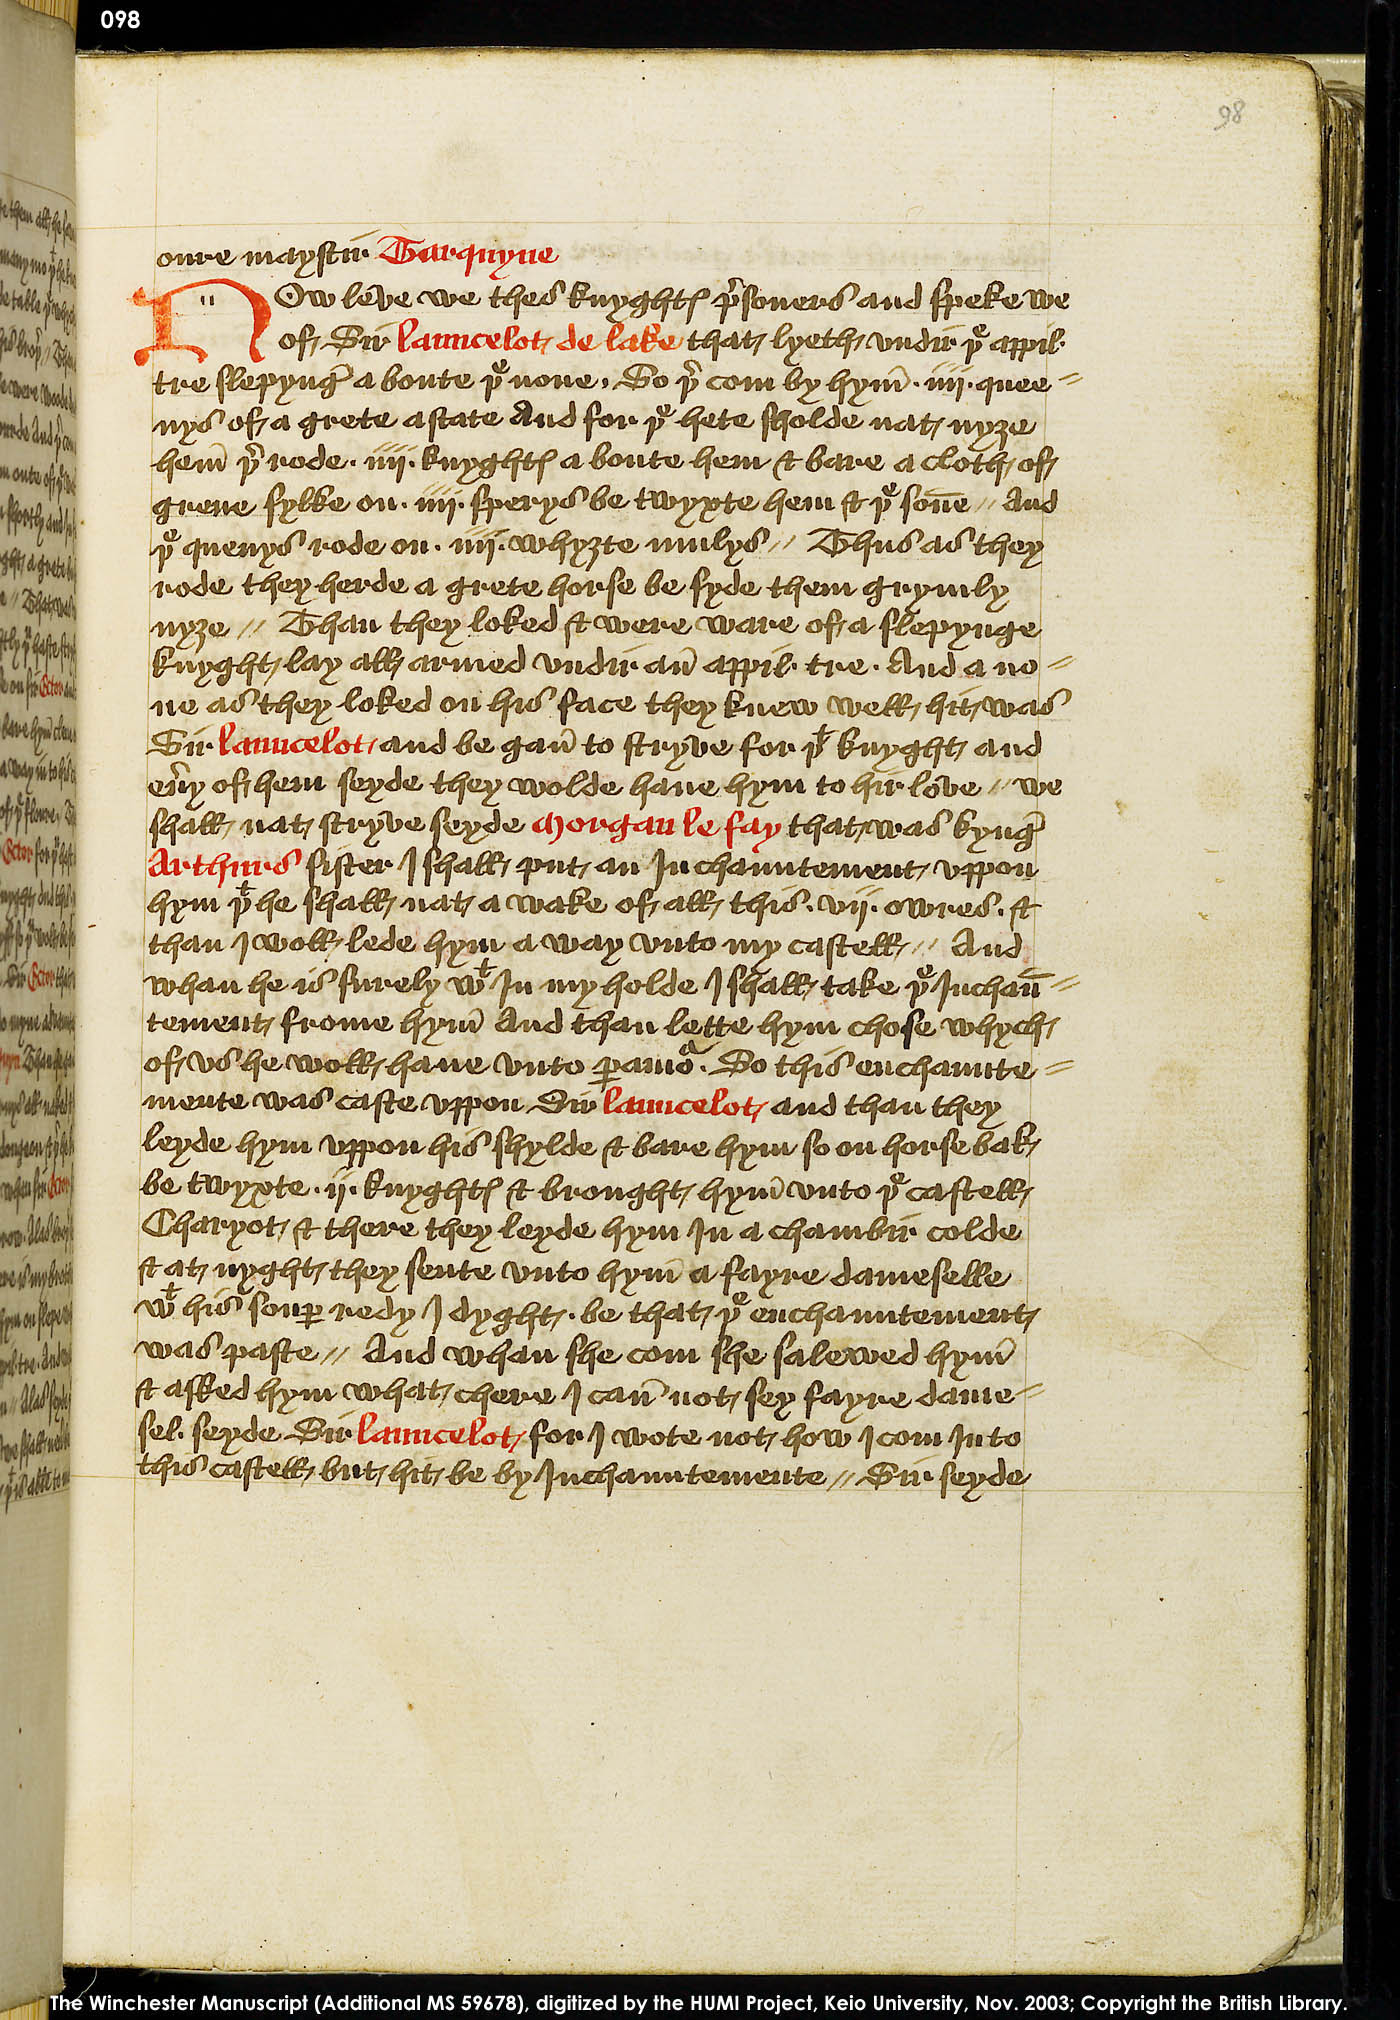 098
98
oure maystir Tarquyne
NOw leve we thes knyghtꝭ p̓soners and speke we
of Sir launcelot de lake that lyeth vndir þͤ appil
tre slepyng̉ a boute þͤ none · So þ̓ com by hym̄ · iiii · quee=
nys of a grete astate And for þͤ hete sholde nat nyȝe
hem̄ þ̓ rode · iiii · knyghtꝭ a boute hem & bare a cloth of
grene sylke on · iiii · sperys be twyxte hem & þͤ son̄e // And
þͤ quenys rode on · iiii · whyȝte mulys // Thus as they
rode they herde a grete horse be syde them grymly
nyȝe // Than they loked & were ware of a slepynge
knyght lay all armed vndir an̄ appil tre · And a no=
ne as they loked on his face they knew well hit was
Sir launcelot and be gan̄ to stryve for þᵗ knyght and
eu̓y of hem seyde they wolde haue hym to hir love // we
shall nat stryve seyde Morgan le fay that was kyng̉
Arthurs sister I shall put an In chauntement vppon
hym þᵗ he shall nat a wake of all this · vii · owres · &
than I woll lede hym a way vnto my castell // And
whan he is surely wᵗ In my holde I shall take þͤ Inchan̄=
tement frome hym̄ And than lette hym chose whych
of vs he woll haue vnto ꝑamoᷓ · So this enchaunte=
mente was caste vppon Sir launcelot and than they
leyde hym vppon his shylde & bare hym so on horse bak
be twyxte · ii · knyghtꝭ & brought hym̄ vnto þͤ castell
Charyot & there they leyde hym In a chambir colde
& at nyght they sente vnto hym̄ a fayre dameselle
wᵗ his souꝑ redy I dyght · be that þͤ enchauntement
was paste // And whan she com she salewed hym̄
& asked hym what chere I can̄ not sey fayre dame=
sel · seyde Sir launcelot for I wote not how I com In to
this castell but hit be by Inchauntemente // Sir seyde
The Winchester Manuscript (Additional MS 59678), digitized by the HUMI Project, Keio University, Nov. 2003; Copyright the British Library.